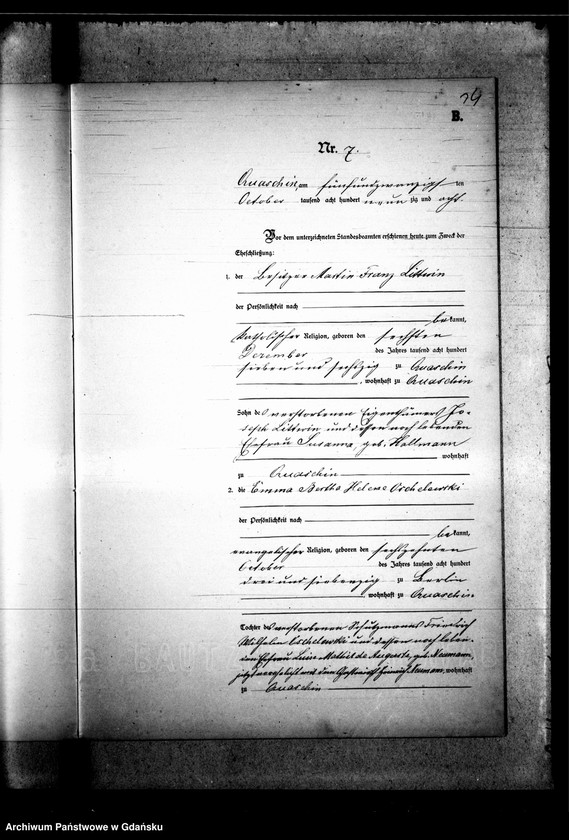 39
B.
Nr. 7.
Quaschin, am fünfundzwanzigsten
October tausend acht hundert neunzig und acht.
Vor dem unterzeichneten Standesbeamten erschienen heute zum Zweck der
Eheschließung:
1. der Besitzer Martin Franz Littwin
der Persönlichkeit nach
bekannt,
katholischer Religion, geboren den sechsten
Dezember des Jahres tausend acht hundert
sieben und sechzig zu Quaschin
, wohnhaft zu Quaschin
Sohn des verstorbenen Eigenthümers Jo-
seph Littwin und dessen noch lebenden
Ehefrau Susanna, geb. Hallmann
wohnhaft
zu Quaschin
2. die Emma Bertha Helene Oschelewski
der Persönlichkeit nach
bekannt,
evangelischer Religion, geboren den sechzehnten
October des Jahres tausend acht hundert
drei und siebenzig zu Berlin
, wohnhaft zu Quaschin
Tochter des verstorbenen Schutzmanns Friedrich
Wilhelm Oschelewski und dessen noch leben-
den Ehefrau Luise Mathilde Auguste, geb. Neumann,
jetzt verehelicht mit dem Gastwirth Heinrich Neumann, wohnhaft
zu Quaschin
Archiwum Państwowe w Gdańsku